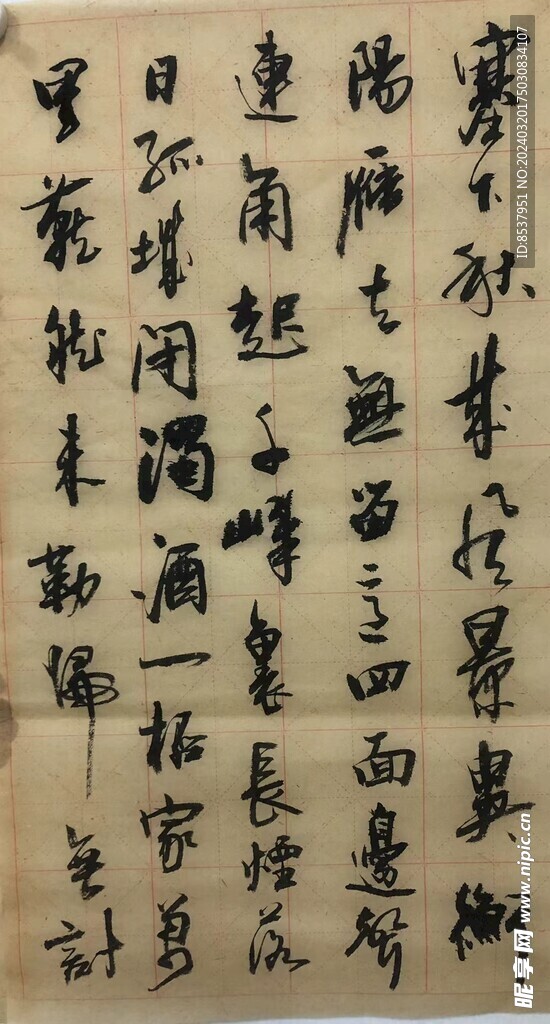 塞下秋来风景異衡
陽雁去無留意四面邊聲
連角起千嶂裏長煙落
日孤城閉濁酒一杯家萬
里燕然未勒歸無計
ID:8537951 NO:20240320175030834107
昵享网 www.nipic.cn